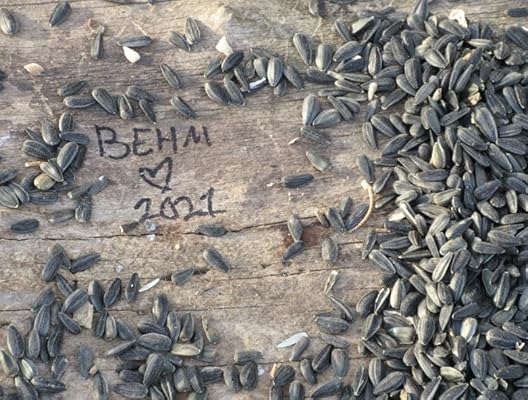 BEHM
♡
2021